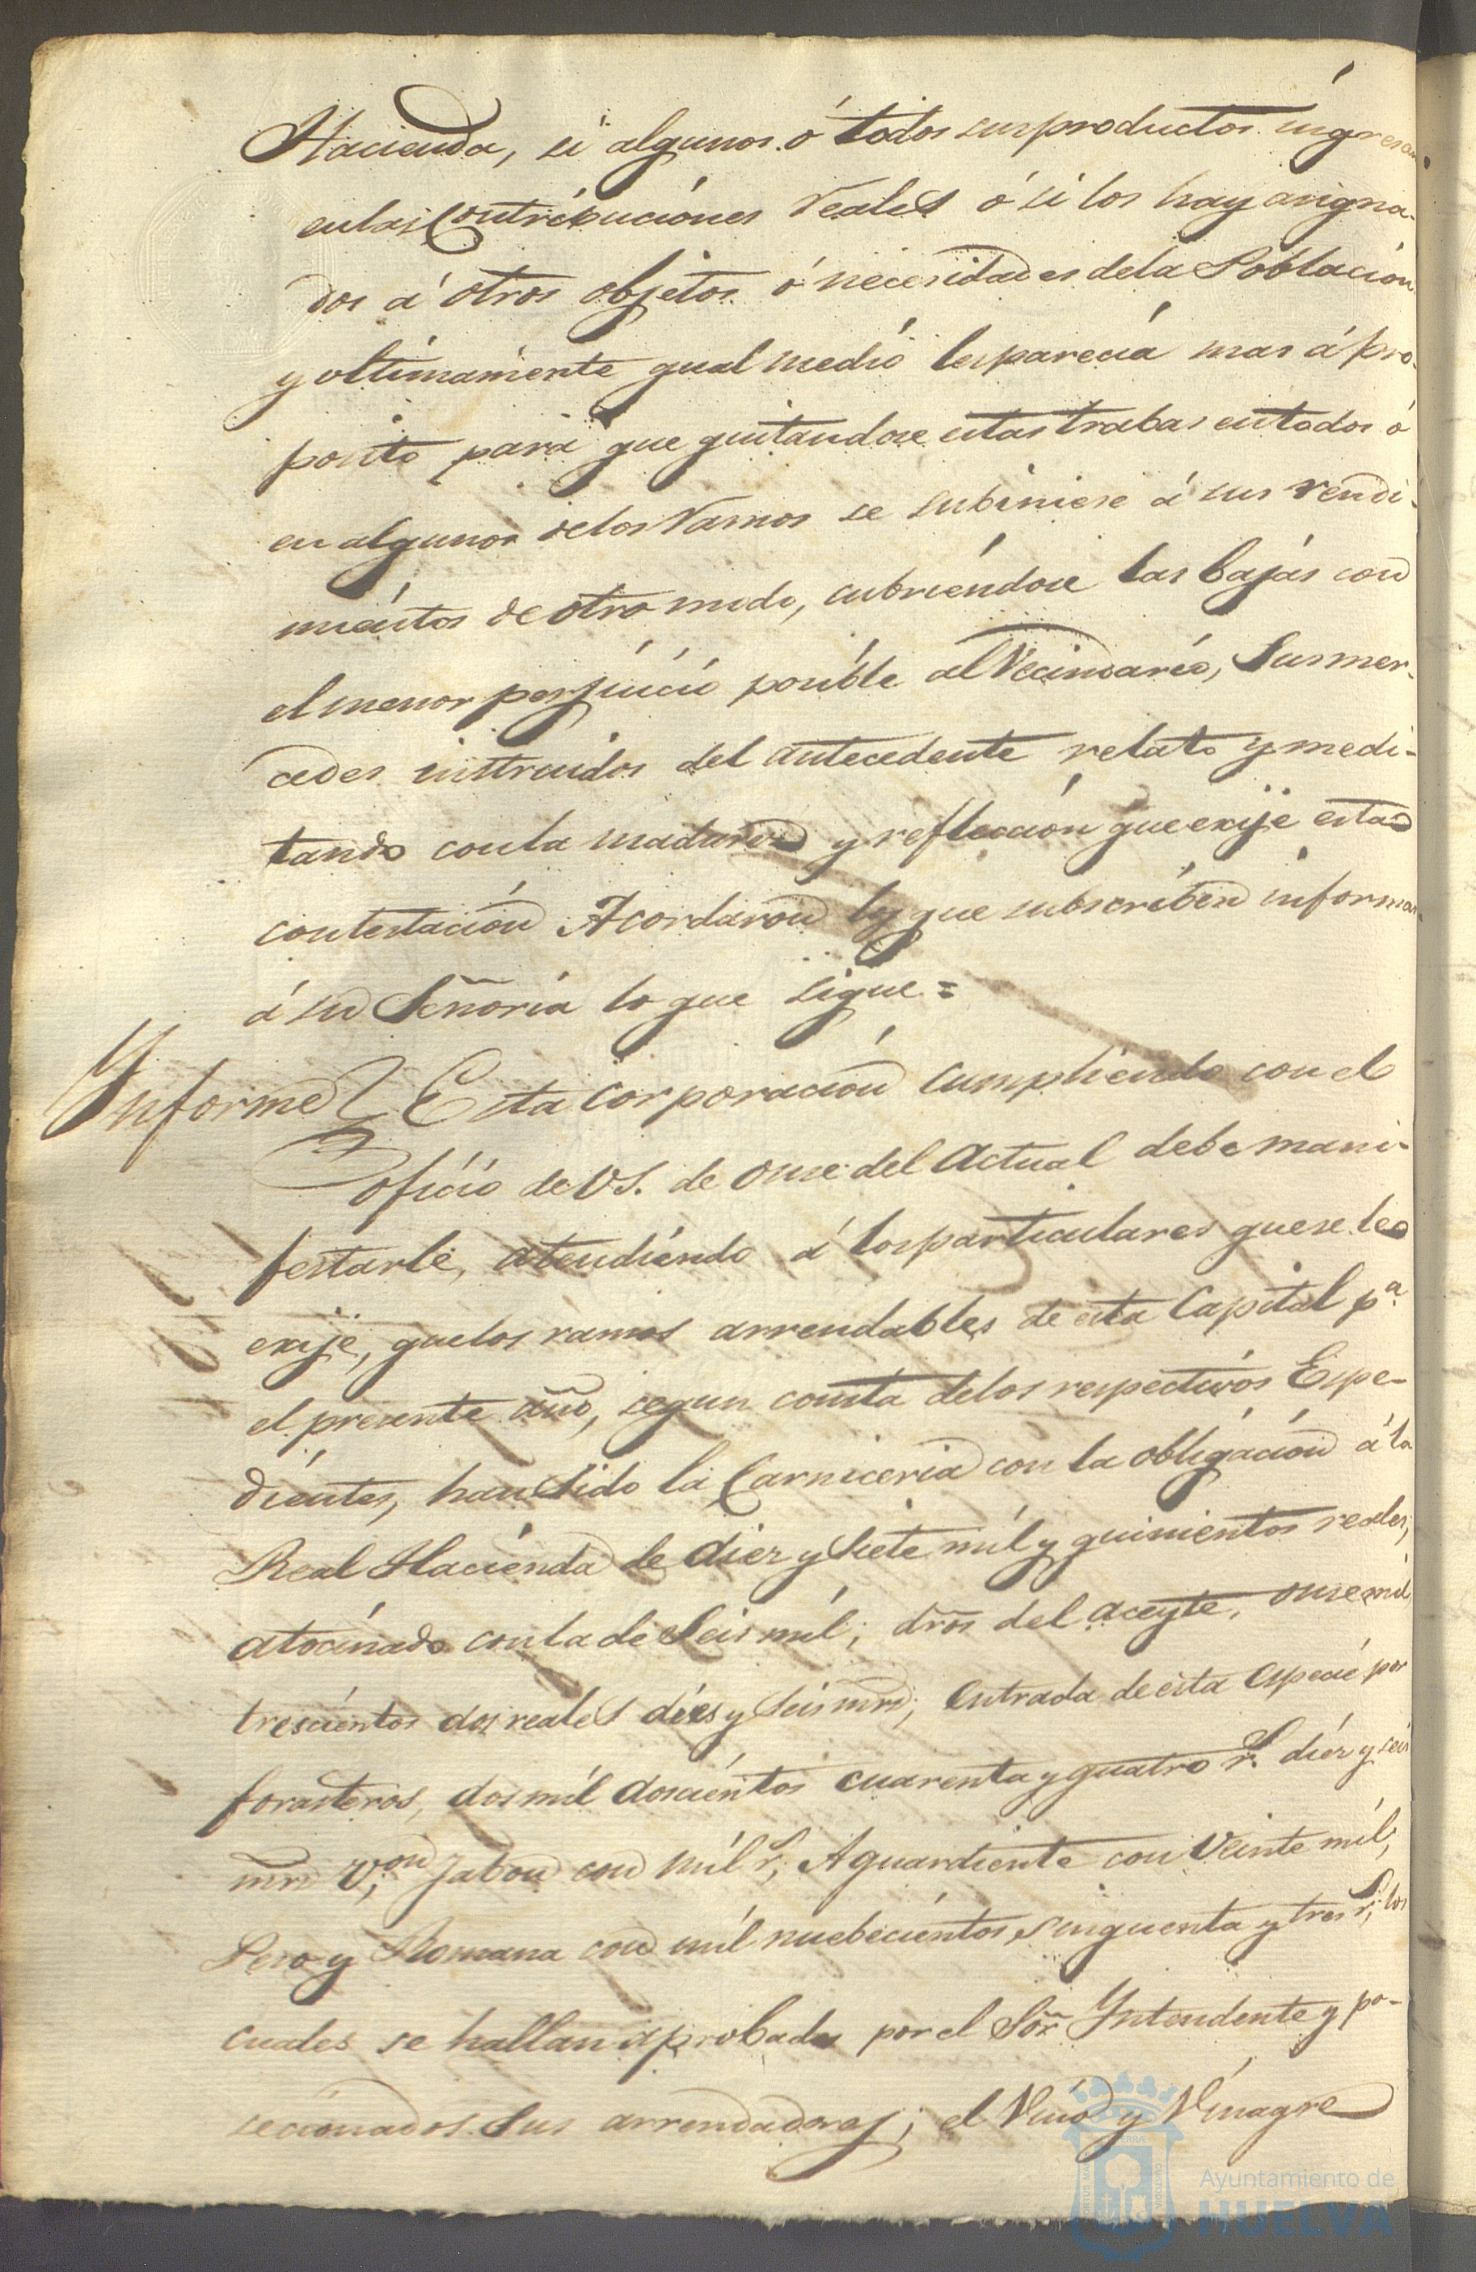 Hacienda, si algunos ó todos sus productos ingresan
en las Contribuciones reales ó si los hay asigna-
dos á otros objetos ó necesidades de la Poblacion
y ultimamente qual medio les parecia mas á pro-
posito para que quitandose estas trabas en todos ó
en algunos de los ramos se subiniese á sus rendi-
mientos de otro modo, cubriendose las bajas con
el menor perjuicio posible al Vecindario, Sus mer-
cedes instruidos del antecedente relato y medi-
tando con la madurez y reflección que exije esta
contestación Acordaron los que subscriben informar
á su Señoria lo que sigue =
Informe Esta Corporacion cumpliendo con el
oficio de VS. de onse del Actual debe mani-
festarle, atendiendo á los particulares que se le
exije, que los ramos arrendables de esta Capital pª
el presente año, segun consta de los respectivos Espe-
dientes, han sido la Carniceria con la obligacion á la
Real Hacienda de diez y siete mil y quinientos reales,
atocinado con la de Seis mil; dros del aceyte, onse mil
trescientos dos reales dies y seis mrs; Entrada de esta especie por
forasteros, dos mil doscientos cuarenta y quatro rs. diez y seis
mrs von; Jabon con mil rs; Aguardiente con Veinte mil;
Peso y Romana con mil nuebecientos sinquenta y tres rs; los
cuales se hallan aprobados por el Sor Yntendente y po-
secionados sus arrendadores; el Vino y Vinagre
Ayuntamiento de
HUELVA